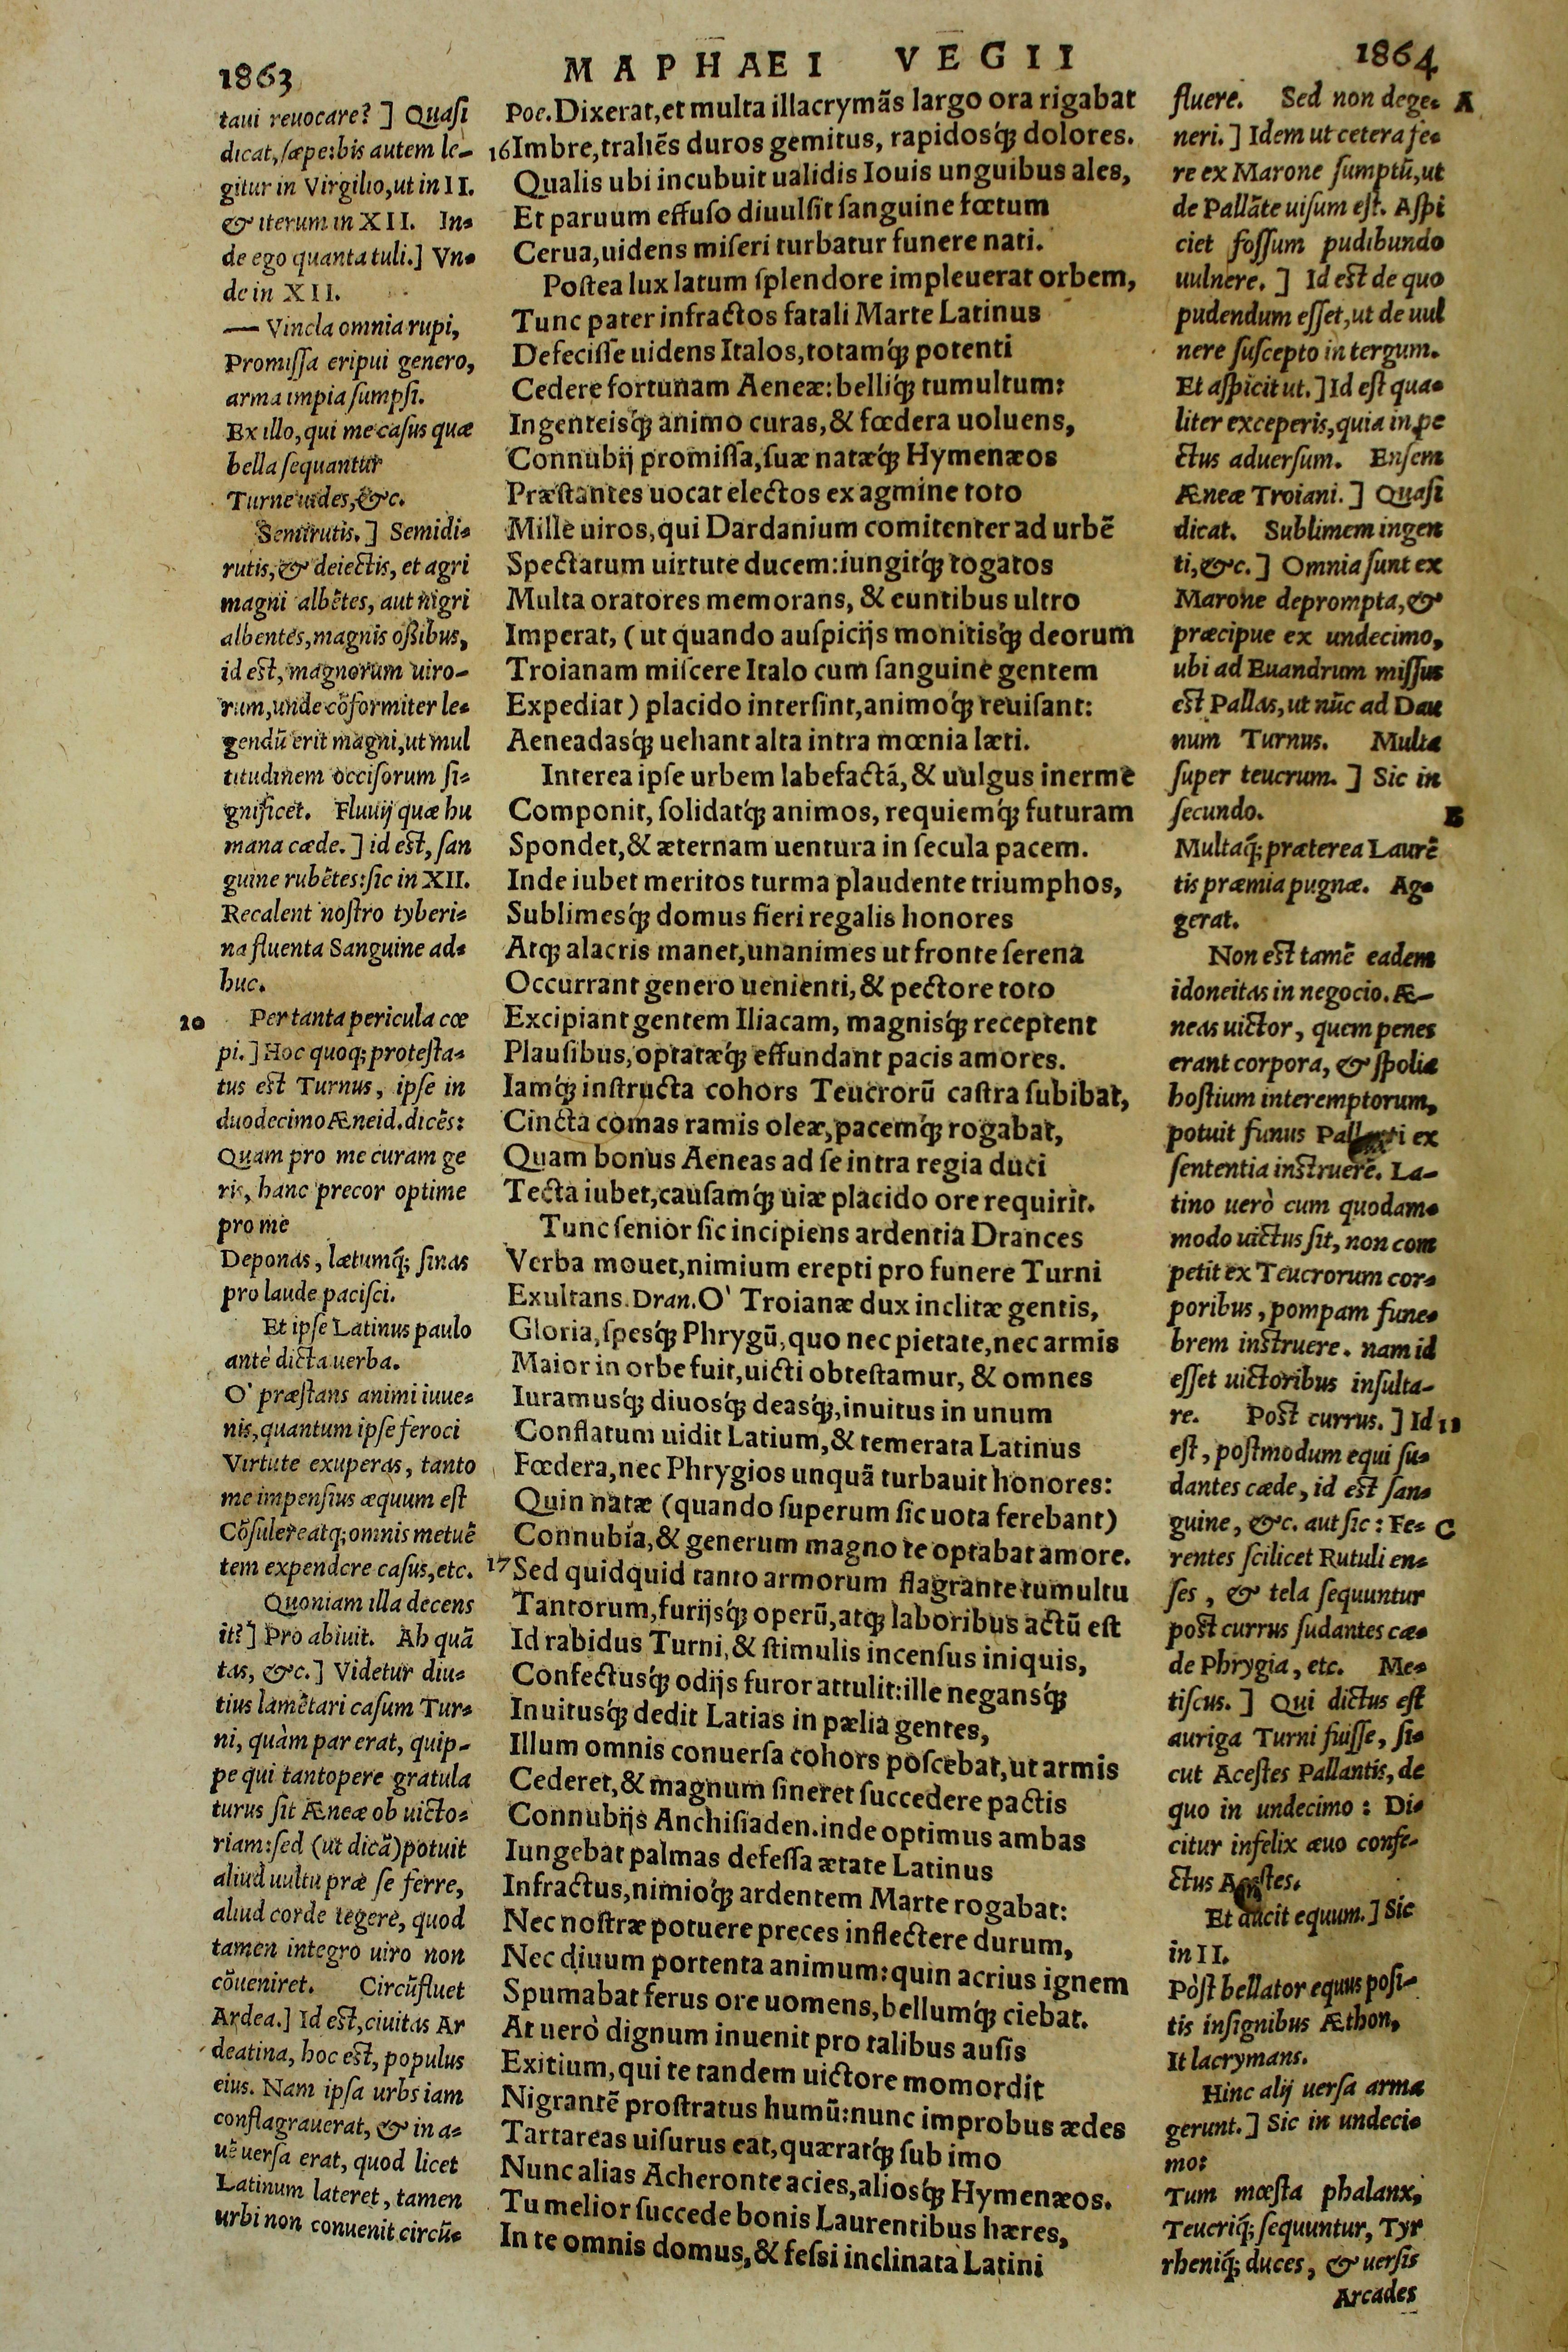 1863
MAPHAEI VEGII
1864
taui reuocare? ] Quasi
dicat, sæpe: bis autem le-
gitur in Virgilio, ut in II.
& iterum in XII. In-
de ego quanta tuli.] Vn-
de in XII.
— Vincla omnia rupi,
Promissa eripui genero,
arma impia sumpsi.
Ex illo, qui me casus quæ
bella sequantur
Turne uides, &c.
Semirutis. ] Semidi-
rutis, & deiectis, et agri
magni albētes, aut nigri
albentes, magnis oßibus,
id est, magnorum uiro-
rum, unde cōformiter le-
gendū erit magni, ut mul
titudinem occisorum si-
gnificet. Fluuij quæ hu
mana cæde. ] id est, san
guine rubētes: sic in XII.
Recalent nostro tyberi-
na fluenta Sanguine ad-
huc.
20 Per tanta pericula cœ
pi. ] Hoc quoq; protesta-
tus est Turnus, ipse in
duodecimo Æneid. dicēs:
Quam pro me curam ge
ris, hanc precor optime
pro me
Deponas, lætumq́; sinas
pro laude pacisci.
Et ipse Latinus paulo
antè dicta uerba.
O' præstans animi iuue-
nis, quantum ipse feroci
Virtute exuperas, tanto
me impensius æquum est
Cōsulere atq; omnis metuē
tem expendere casus, etc.
Quoniam illa decens
it? ] Pro abiuit. Ah quā
tas, &c.] Videtur diu-
tius lamētari casum Tur-
ni, quàm par erat, quip-
pe qui tantopere gratula
turus sit Æneæ ob uicto-
riam: sed (ut dicā) potuit
aliud uultu præ se ferre,
aliud corde tegere, quod
tamen integro uiro non
cōueniret. Circūfluet
Ardea.] Id est, ciuitas Ar
deatina, hoc est, populus
eius. Nam ipsa urbs iam
conflagrauerat, & in a-
uē uersa erat, quod licet
Latinum lateret, tamen
urbi non conuenit circū-
Poe. Dixerat, et multa illacrymās largo ora rigabat
16 Imbre, trahēs duros gemitus, rapidosq́; dolores.
Qualis ubi incubuit ualidis Iouis unguibus ales,
Et paruum effuso diuulsit sanguine fœtum
Cerua, uidens miseri turbatur funere nati.
Postea lux latum splendore impleuerat orbem,
Tunc pater infractos fatali Marte Latinus
Defecisse uidens Italos, totamq́; potenti
Cedere fortunam Aeneæ: belliq́; tumultum:
Ingenteisq́; animo curas, & fœdera uoluens,
Connubij promissa, suæ natæq́; Hymenæos
Præstantes uocat electos ex agmine toto
Mille uiros, qui Dardanium comitenter ad urbē
Spectatum uirtute ducem: iungitq́; togatos
Multa oratores memorans, & euntibus ultro
Imperat, (ut quando auspicijs monitisq́; deorum
Troianam miscere Italo cum sanguine gentem
Expediat) placido intersint, animoq́; reuisant:
Aeneadasq́; uehant alta intra mœnia læti.
Interea ipse urbem labefactā, & uulgus inerme
Componit, solidatq́; animos, requiemq́; futuram
Spondet, & æternam uentura in secula pacem.
Inde iubet meritos turma plaudente triumphos,
Sublimesq́; domus fieri regalis honores
Atq; alacris manet, unanimes ut fronte serena
Occurrant genero uenienti, & pectore toto
Excipiant gentem Iliacam, magnisq́; receptent
Plausibus, optatæq́; effundant pacis amores.
Iamq́; instructa cohors Teucrorū castra subibat,
Cincta comas ramis oleæ, pacemq́; rogabat,
Quam bonus Aeneas ad se intra regia duci
Tecta iubet, causamq́; uiæ placido ore requirit.
Tunc senior sic incipiens ardentia Drances
Verba mouet, nimium erepti pro funere Turni
Exultans. Dran. O' Troianæ dux inclitæ gentis,
Gloria, spesq́; Phrygū, quo nec pietate, nec armis
Maior in orbe fuit, uicti obtestamur, & omnes
Iuramusq́; diuosq́; deasq́;, inuitus in unum
Conflatum uidit Latium, & temerata Latinus
Fœdera, nec Phrygios unquā turbauit honores:
Quin natæ (quando superum sic uota ferebant)
Connubia, & generum magno te optabat amore.
17 Sed quidquid tanto armorum flagrante tumultu
Tantorum, furijsq́; operū, atq; laboribus actū est
Id rabidus Turni, & stimulis incensus iniquis,
Confectusq́; odijs furor attulit: ille negansq́;
Inuitusq́; dedit Latias in pælia gentes,
Illum omnis conuersa cohors poscebat, ut armis
Cederet, & magnum sineret succedere pactis
Connubijs Anchisiaden. inde optimus ambas
Iungebat palmas defessa ætate Latinus
Infractus, nimioq́; ardentem Marte rogabat:
Nec nostræ potuere preces inflectere durum,
Nec diuum portenta animum: quin acrius ignem
Spumabat ferus ore uomens, bellumq́; ciebat.
At uerò dignum inuenit pro talibus ausis
Exitium, qui te tandem uictore momordit
Nigrantē prostratus humū: nunc improbus ædes
Tartareas uisurus eat, quæratq́; sub imo
Nunc alias Acheronte acies, aliosq́; Hymenæos.
Tu melior succede bonis Laurentibus hæres,
In te omnis domus, & fessi inclinata Latini
fluere. Sed non dege- A
neri. ] Idem ut cetera fe-
re ex Marone sumptū, ut
de Pallāte uisum est. Aspi
ciet fossum pudibundo
uulnere. ] Id est de quo
pudendum esset, ut de uul
nere suscepto in tergum.
Et aspicit ut. ] Id est qua-
liter exceperis, quia in pe
ctus aduersum. Ensem
Æneæ Troiani. ] Quasi
dicat. Sublimem ingen
ti, &c. ] Omnia sunt ex
Marone deprompta, &
præcipue ex undecimo,
ubi ad Euandrum missus
est Pallas, ut nūc ad Dau
num Turnus. Multa
super teucrum. ] Sic in
secundo. B
Multaq́; præterea Laurē
tis præmia pugnæ. Ag-
gerat.
Non est tamē eadem
idoneitas in negocio. Æ-
neas uictor, quem penes
erant corpora, & spolia
hostium interemptorum,
potuit funus ex
sententia instruerē. La-
tino uerò cum quodam-
modo uictus sit, non com
petit ex Teucrorum cor-
poribus, pompam fune-
brem instruere. nam id
esset uictoribus insulta-
re. Post currus. ] Id 11
est, postmodum equi su-
dantes cæde, id est san-
guine, &c. aut sic: Fe- C
rentes scilicet Rutuli en-
ses, & tela sequuntur
post currus sudantes cæ-
de Phrygia, etc. Me-
tiscus. ] Qui dictus est
auriga Turni fuisse, si-
cut Acestes Pallantis, de
quo in undecimo: Di-
citur infelix æuo confe-
ctus
Et ducit equum. ] Sic
in II.
Pòst bellator equus posi-
tis insignibus Æthon,
It lacrymans.
Hinc alij uersa arma
gerunt. ] Sic in undeci-
mo:
Tum mœsta phalanx,
Teucriq́; sequuntur, Tyr
rheniq́; duces, & uersis
Arcades